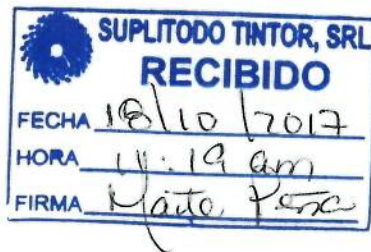 SUPLITODO TINTOR, SRL
RECIBIDO
FECHA 18/10/2017
HORA 11:19 am
FIRMA Maite Peña